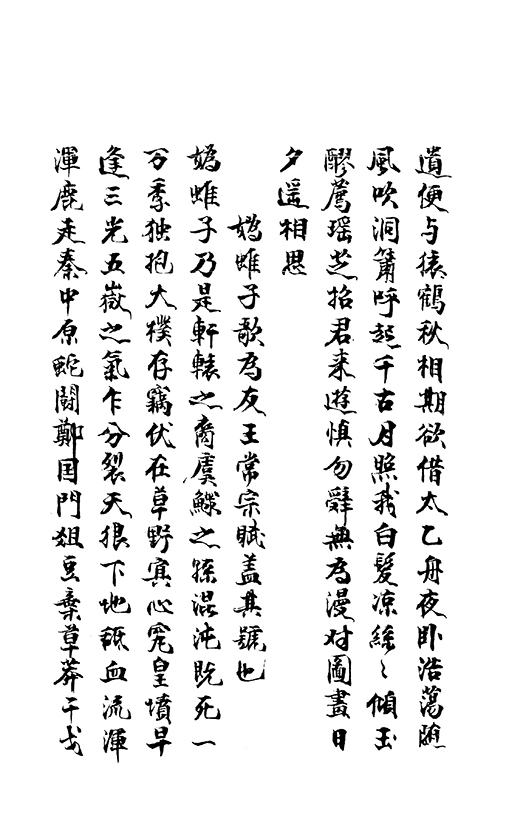 遺便与猿鶴秋相期欲借太乙舟夜卧浩蕩随
風吹洞簫呼起千古月照我白髮凉絲〻傾玉
醪薦瑶芝招君来遊慎勿辭無為漫对圖畫日
夕遥相思
媯蜼子歌為友王常宗賦盖其號也
媯蜼子乃是軒轅之裔虞鰥之孫混沌既死一
万季独抱大樸存竊伏在草野冥心究皇墳早
逢三光五嶽之氣乍分裂天狼下地舐血流渾
渾鹿走秦中原蛇鬪鄭国門俎豆棄草莽干戈